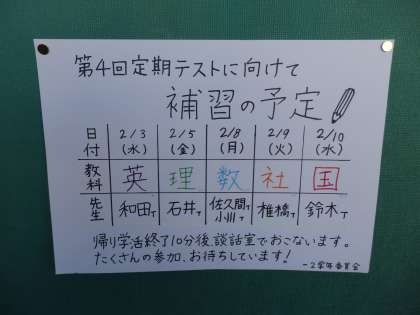 第4回定期テストに向けて
補習の予定
日付 2/3(水) 2/5(金) 2/8(月) 2/9(火) 2/10(水)
教科 英 理 数 社 国
先生 和田T 石井T 佐久間T 小川T 椎橋T 鈴木T
帰り学活終了10分後、談話室でおこないます。
たくさんの参加、お待ちしています!
-2学年委員会